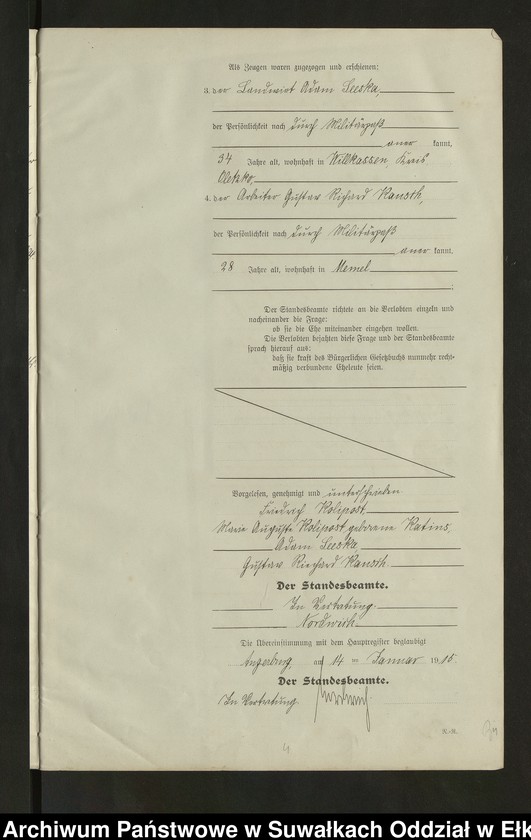 Als Zeugen waren zugezogen und erschienen:
3. der Landwirt Adam Seeska,
der Persönlichkeit nach durch Militärpaß
aner kannt,
34 Jahre alt, wohnhaft in Willkassen, Kreis
Oletzko
4. der Arbeiter Gustav Richard Kansth,
der Persönlichkeit nach durch Militärpaß
aner kannt,
28 Jahre alt, wohnhaft in Memel
Der Standesbeamte richtete an die Verlobten einzeln und
nacheinander die Frage:
ob sie die Ehe miteinander eingehen wollen.
Die Verlobten bejahten diese Frage und der Standesbeamte
sprach hierauf aus:
daß sie kraft des Bürgerlichen Gesetzbuchs nunmehr recht-
mäßig verbundene Eheleute seien.
Vorgelesen, genehmigt und unterschrieben
Friedrich Kolipost.
Marie Auguste Kolipost geborene Katins.
Adam Seeska.
Gustav Richard Kansth.
Der Standesbeamte.
In Vertretung.
Nordwich.
Die Übereinstimmung mit dem Hauptregister beglaubigt
am 14 ten Januar 1915.
Der Standesbeamte.
In Vertretung
4
Archiwum Państwowe w Suwałkach Oddział w Ełk